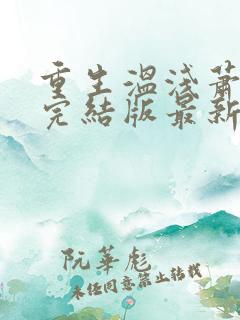 重生溫淺蕭
完結版最新
阮華彪
未經同意禁止轉載